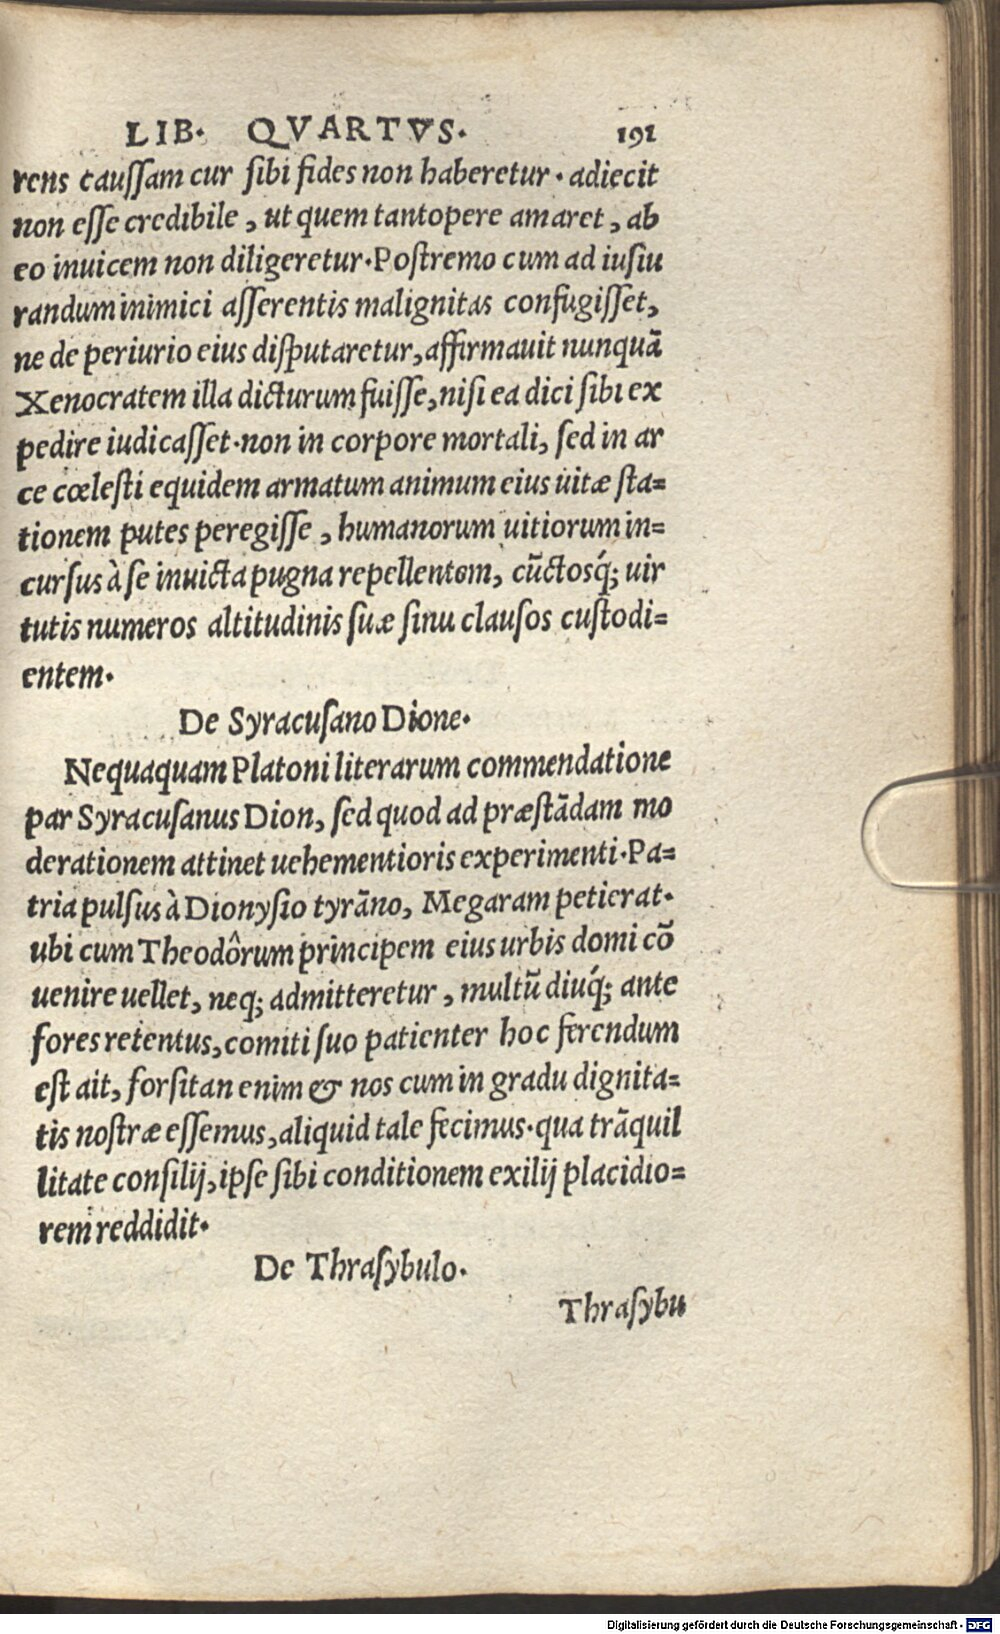 LIB. QVARTVS. 191
rens caussam cur sibi fides non haberetur. adiecit
non esse credibile, ut quem tantopere amaret, ab
eo inuicem non diligeretur. Postremo cum ad iusiu
randum inimici asserentis malignitas confugisset,
ne de periurio eius disputaretur, affirmauit nunquã
Xenocratem illa dicturum fuisse, nisi ea dici sibi ex
pedire iudicasset. non in corpore mortali, sed in ar
ce cœlesti equidem armatum animum eius uitæ sta=
tionem putes peregisse, humanorum uitiorum in=
cursus à se inuicta pugna repellentem, cũctosq́; uir
tutis numeros altitudinis suæ sinu clausos custodi=
entem.
De Syracusano Dione.
Nequaquam Platoni literarum commendatione
par Syracusanus Dion, sed quod ad præstãdam mo
derationem attinet uehementioris experimenti. Pa=
tria pulsus à Dionysio tyrãno, Megaram petierat.
ubi cum Theodôrum principem eius urbis domi cõ
uenire uellet, neq; admitteretur, multũ diuq́; ante
fores retentus, comiti suo patienter hoc ferendum
est ait, forsitan enim & nos cum in gradu dignita=
tis nostræ essemus, aliquid tale fecimus. qua trãquil
litate consilij, ipse sibi conditionem exilij placidio=
rem reddidit.
De Thrasybulo.
Thrasybu
Digitalisierung gefördert durch die Deutsche Forschungsgemeinschaft - DFG